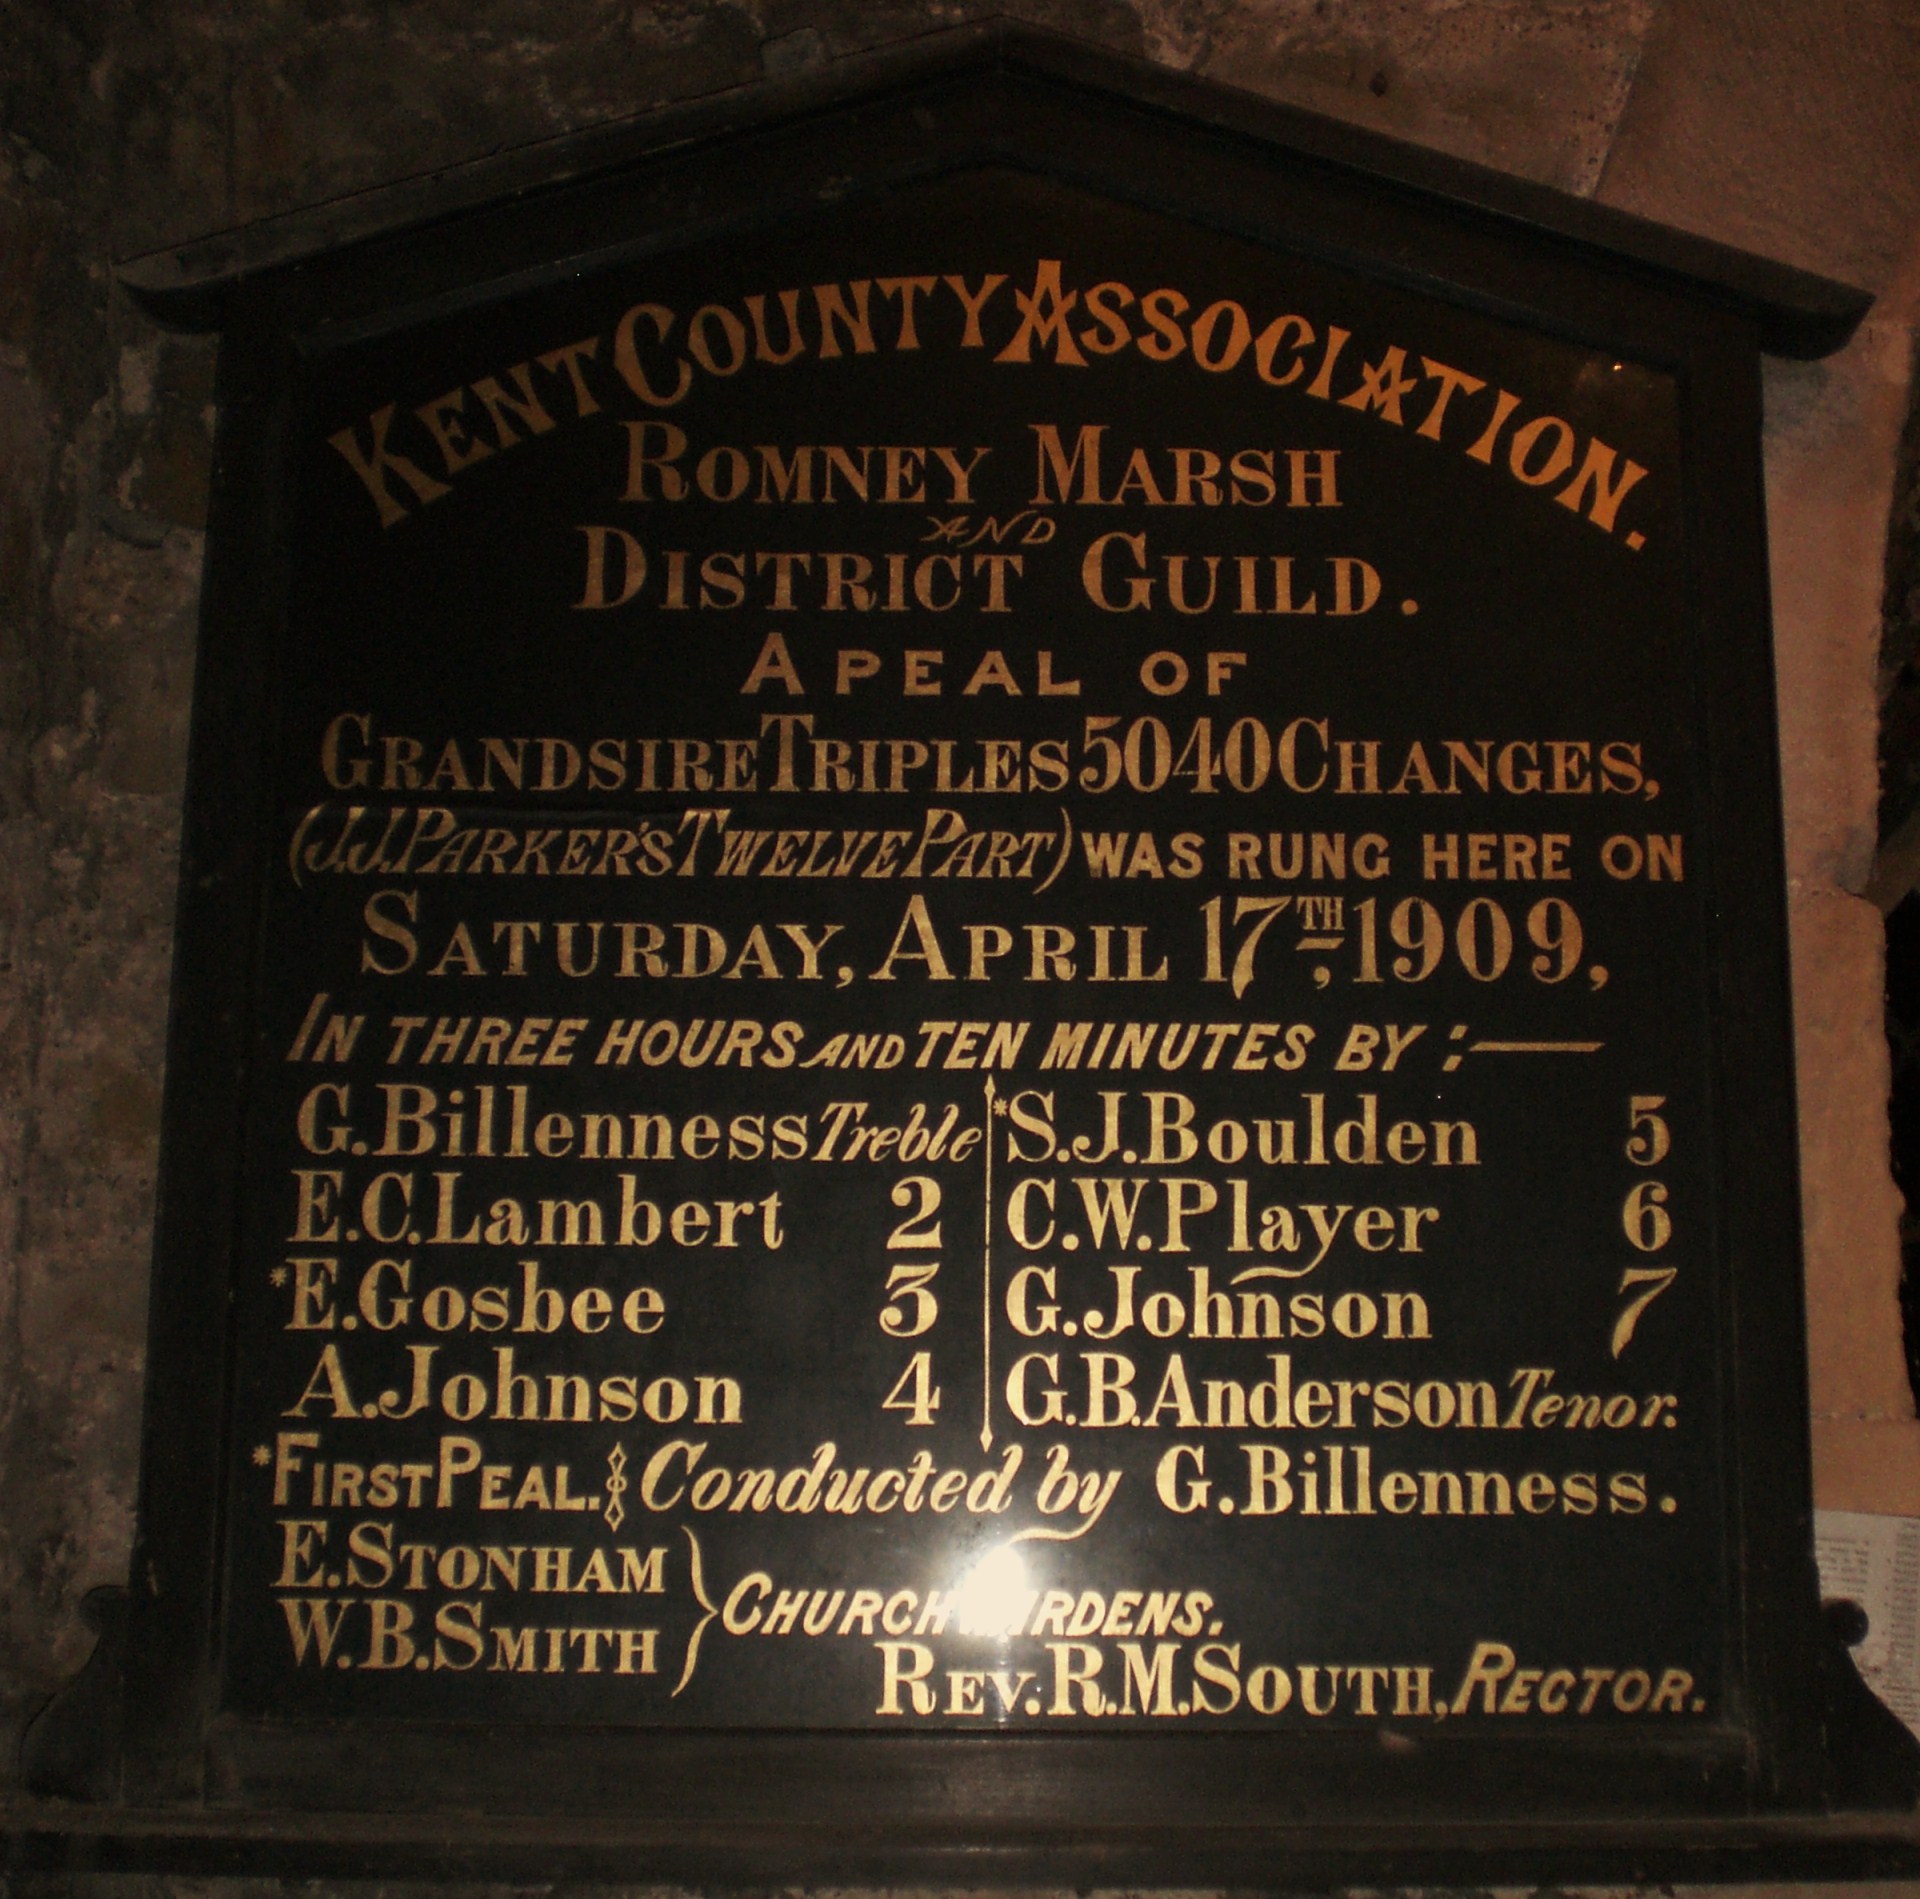 KENT COUNTY ASSOCIATION.
ROMNEY MARSH
AND
DISTRICT GUILD.
A PEAL OF
GRANDSIRE TRIPLES 5040 CHANGES,
(J.J. PARKER'S TWELVE PART) WAS RUNG HERE ON
SATURDAY, APRIL 17TH, 1909,
IN THREE HOURS AND TEN MINUTES BY:—
G. Billenness Treble *S.J. Boulden 5
E.C. Lambert 2 C.W. Player 6
*E. Gosbee 3 G. Johnson 7
A. Johnson 4 G.B. Anderson Tenor.
*FIRST PEAL. Conducted by G. Billenness.
E. STONHAM
W.B. SMITH } CHURCHWARDENS.
REV. R.M. SOUTH, RECTOR.